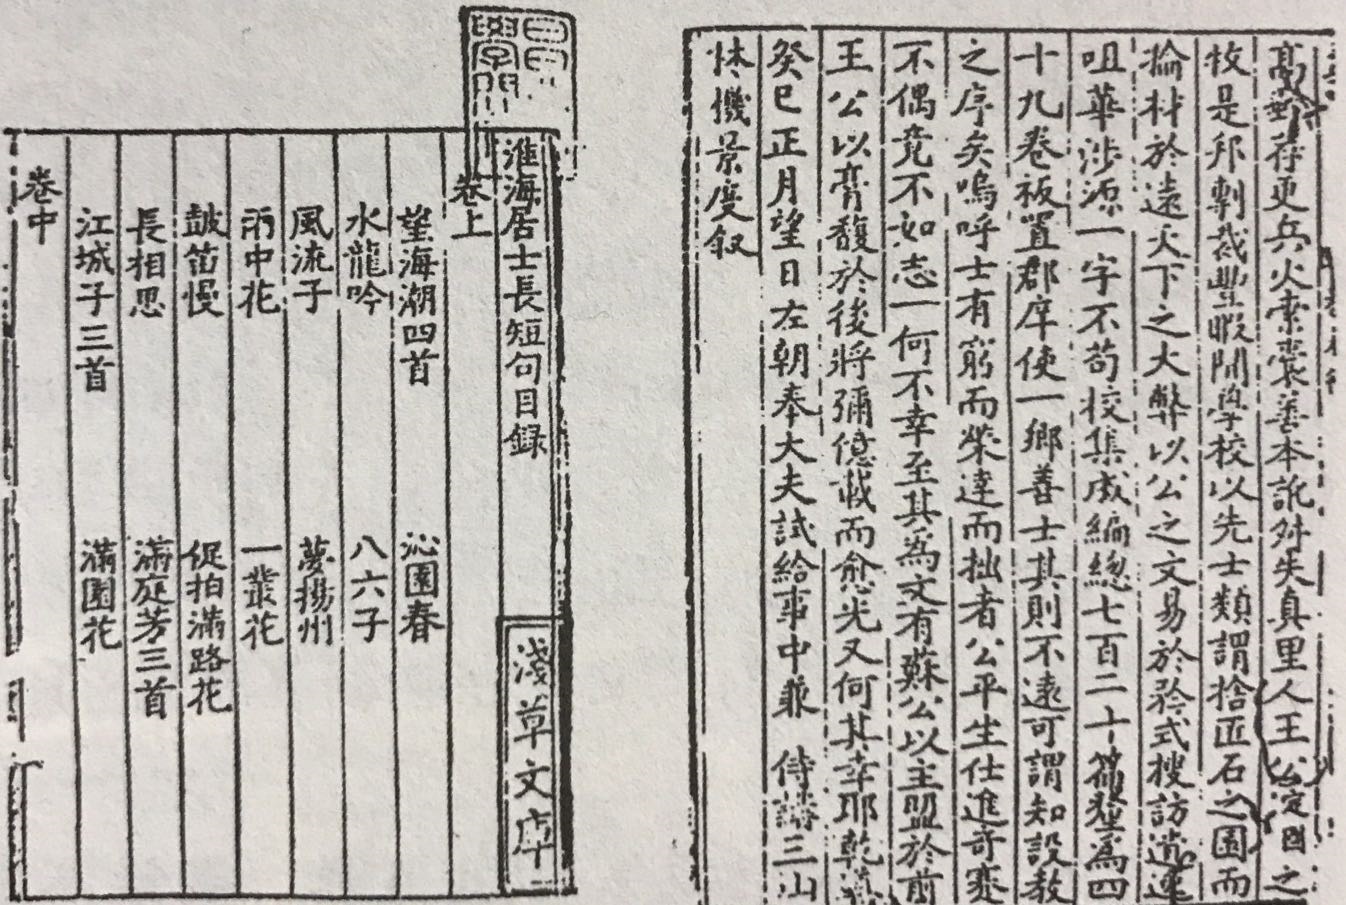 高郵荐更兵火索裳善本訛舛失真里人王公定國之
牧是邦剸裁豐暇開學校以先士類謂捨匠石之園而
掄材於遠天下之大弊以公之文易於矜式搜訪遺逸
咀華涉源一字不苟校集成編總七百二十篇釐爲四
十九卷板置郡庠使一鄉善士其則不遠可謂知設教
之序矣嗚呼士有窮而榮達而拙者公平生仕進奇蹇
不偶竟不如志一何不幸至其爲文有蘇公以主盟於前
王公以膏馥於後將彌億載而愈光又何其幸耶乾道
癸巳正月望日左朝奉大夫試給事中兼 侍講三山
林機景度叙
淮海居士長短句目録
卷上
望海潮四首 沁園春
水龍吟 八六子
風流子 夢揚州
雨中花 一叢花
鼓笛慢 促拍滿路花
長相思 滿庭芳三首
江城子三首 滿園花
卷中
淺草文庫